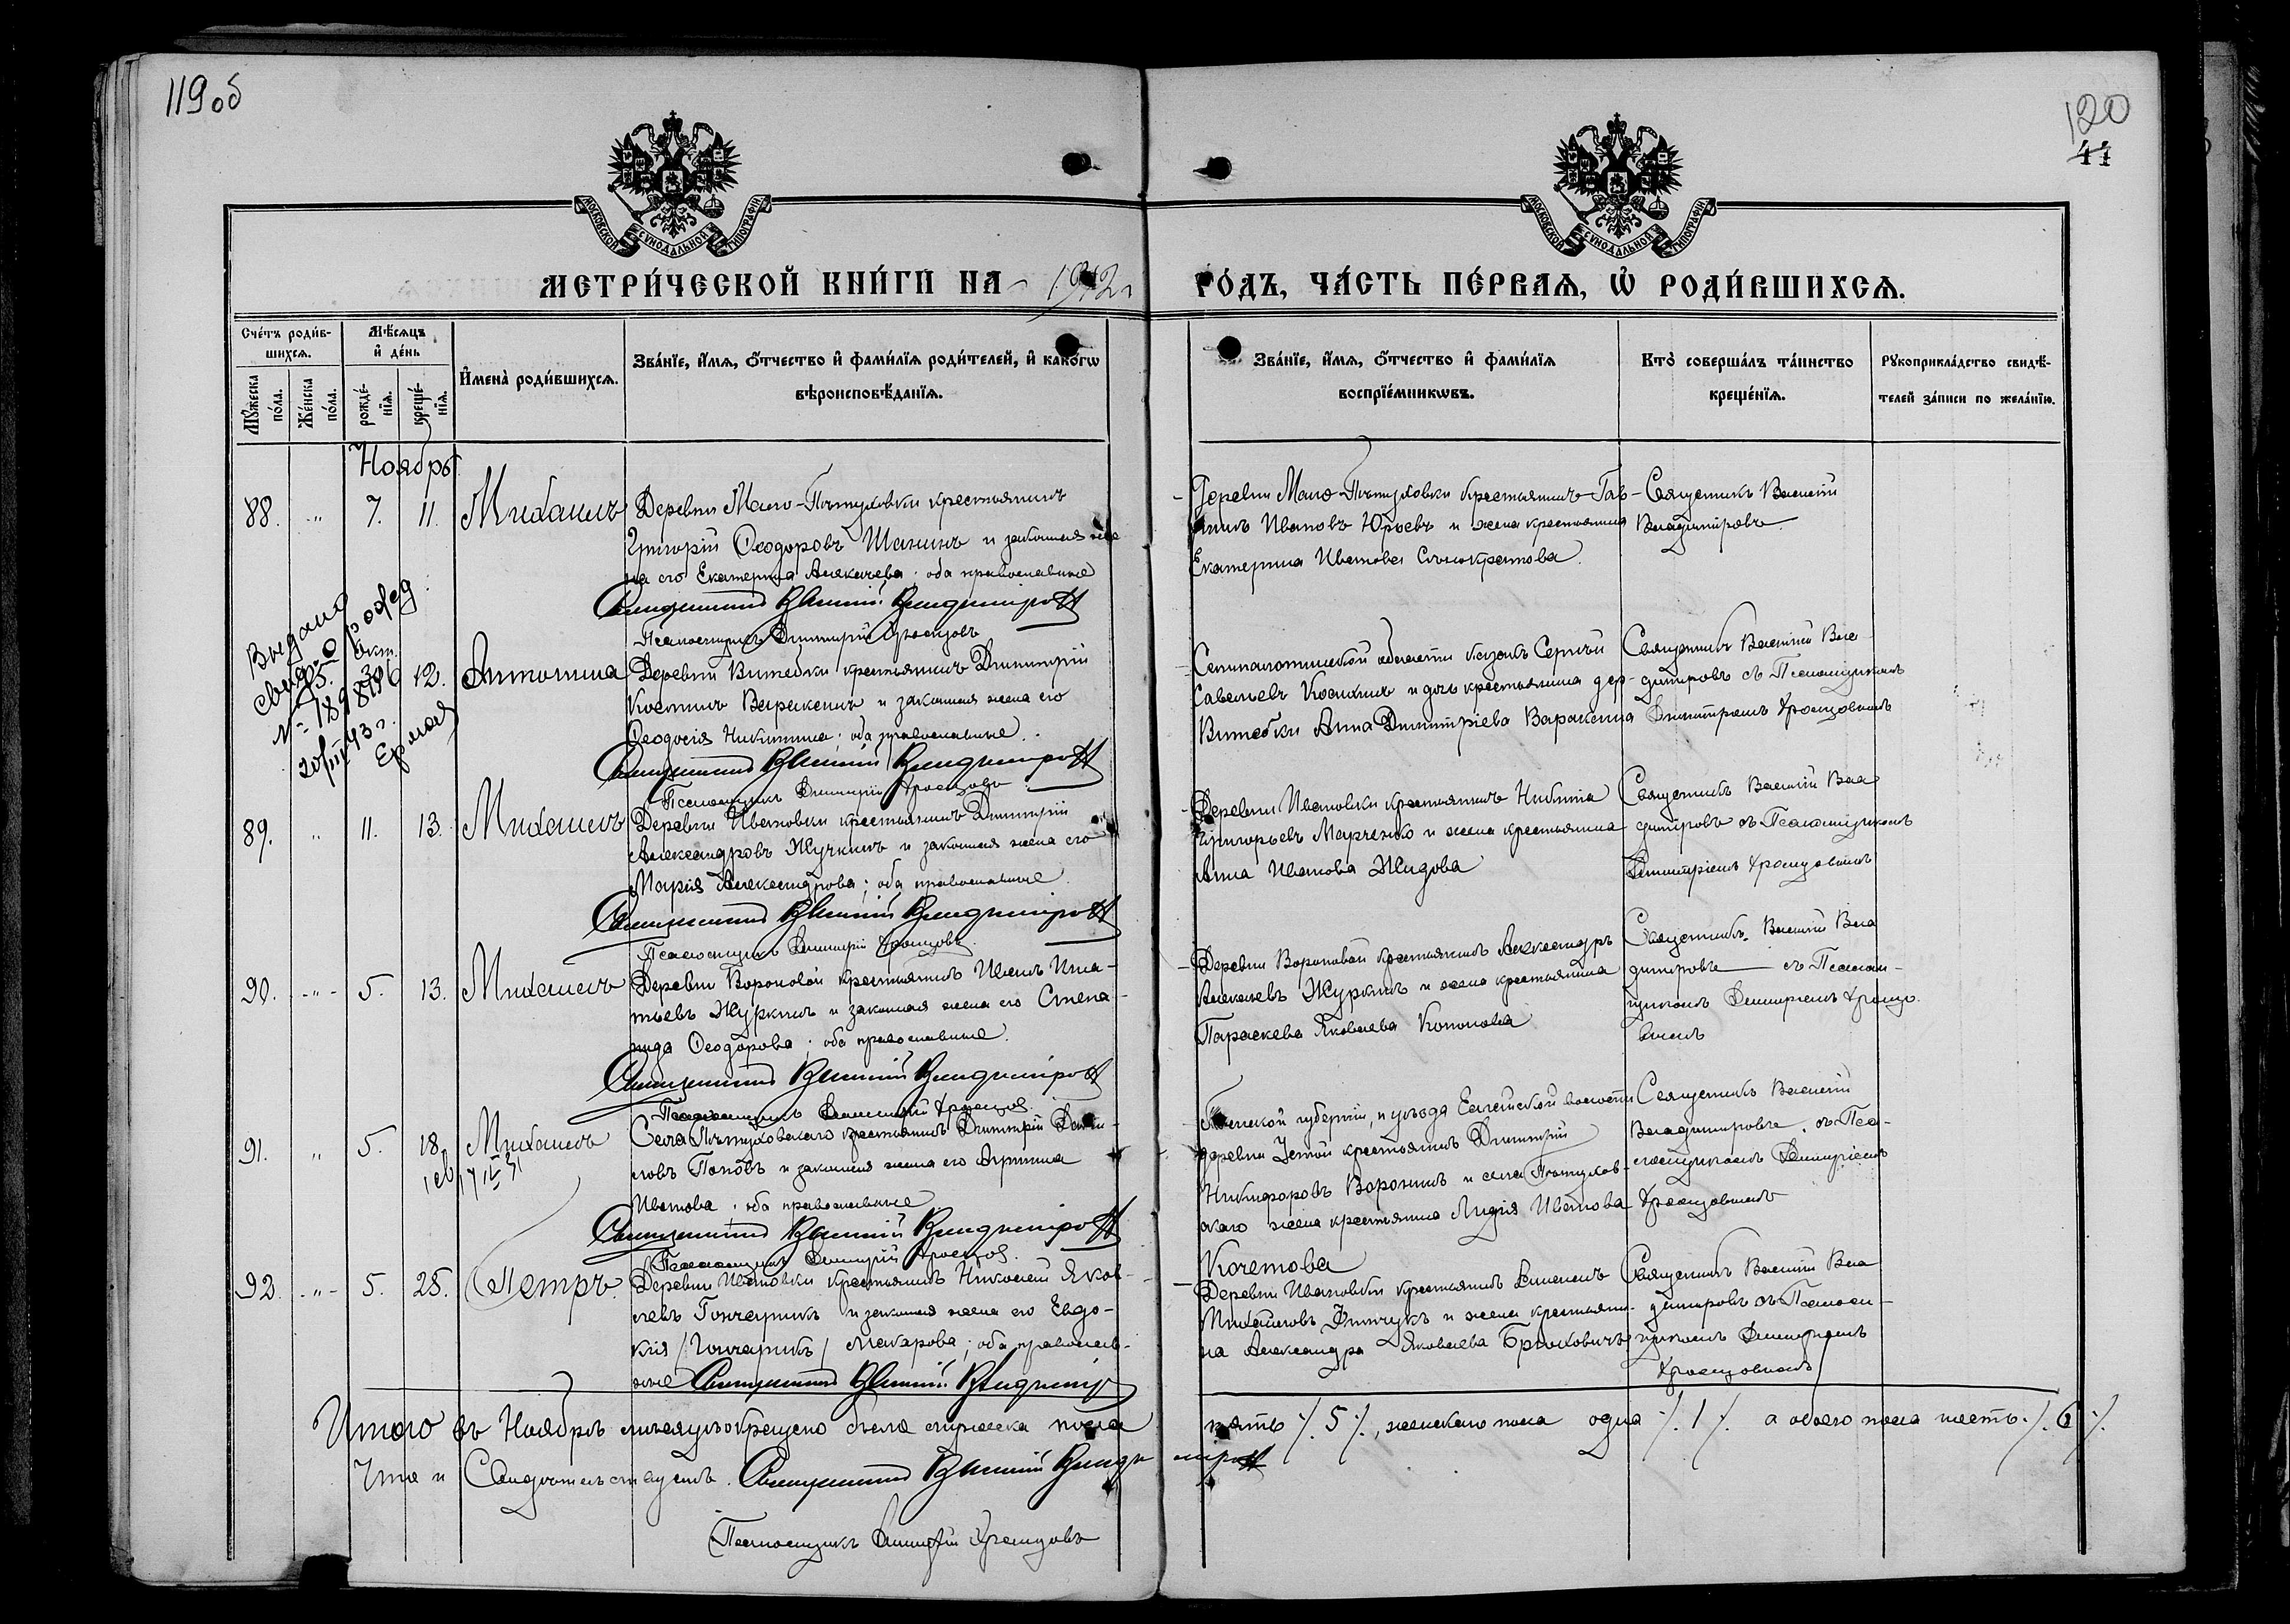 119 об
120
41
МОСКОВСКОЙ СУНОДАЛЬНОЙ ТИПОГРАФІИ
МОСКОВСКОЙ СУНОДАЛЬНОЙ ТИПОГРАФІИ
МЕТРИ́ЧЕСКОЙ КНИ́ГИ НА 1912 г
ГО́ДЪ, ЧА́СТЬ ПЕ́РВАѦ, Ѡ҆ РОДИ́ВШИХСѦ.
Сче́тъ роди́в-
шихсѧ.
Мѣ́сѧцъ
и҆ де́нь
Мꙋ́жеска по́ла.
Же́нска по́ла.
рожде́-
нїѧ.
креще́-
нїѧ.
И҆мена̀ роди́вшихсѧ.
Зва́нїе, и҆́мѧ, ѻ҆́тчество и҆ фами́лїѧ роди́телей, и҆ како́гѡ
вѣроисповѣ́данїѧ.
Зва́нїе, и҆́мѧ, ѻ҆́тчество и҆ фами́лїѧ
воспрїе́мникѡвъ.
Кто̀ соверша́лъ та́инство
креще́нїѧ.
Рꙋкоприкла́дство свидѣ́-
телей за́писи по жела́нїю.
Ноябрь
88. " 7. 11. Михаилъ Деревни Мало-Пѣтуховки крестьянинъ
Григорій Ѳеодоровъ Шанинъ и законная же
на его Екатерина Алексѣева; оба православные
Священникъ Василій Владиміровъ
Псаломщикъ Димитрій Хромцовъ
Деревни Мало-Пѣтуховки крестьянинъ Гав-
Ивановъ Юрьевъ и жена крестьянина
Екатерина Иванова
Священникъ Василій
Владиміровъ
Выдано
свид. о рожд
20/III 43 г.
Окт.
30 12. Антонина Деревни Витебки крестьянинъ Димитрій
Варакинъ и законная жена его
Ѳеодосія Никитина; оба православные.
Священникъ Василій Владиміровъ
Псаломщикъ Димитрій Хромцовъ
Семипалатинской области казакъ Сергѣй
Савельевъ и дочь крестьянина дер-
Витебки Анна Димитріева Варакина
Священникъ Василій Вла
диміровъ съ Псаломщикомъ
Димитріемъ Хромцовымъ
89. " 11. 13. Михаилъ Деревни Ивановки крестьянинъ Димитрій
Александровъ Жучкинъ и законная жена его
Марія Александрова; оба православные
Священникъ Василій Владиміровъ
Псаломщикъ Димитрій Хромцовъ
Деревни Ивановки крестьянинъ Никита
Григорьевъ Марченко и жена крестьянина
Анна Иванова Жидова
Священникъ Василій Вла
диміровъ съ Псаломщикомъ
Димитріемъ Хромцовымъ
90. " 5. 13. Михаилъ Деревни Вороновой крестьянинъ Иванъ Игна-
тьевъ Журкинъ и законная жена его Степа-
нида Ѳеодорова; оба православные.
Священникъ Василій Владиміровъ
Псаломщикъ Димитрій Хромцовъ
Деревни Вороновой крестьянинъ Александръ
Алексѣевъ Журкинъ и жена крестьянина
Параскева Яковлева Кононова
Священникъ Василій Вла
диміровъ съ Псалом-
щикомъ Димитріемъ Хромцо-
вымъ
91. " 5. 18. Михаилъ Села Пѣтуховскаго крестьянинъ Димитрій Дани-
ловъ Поповъ и законная жена его Агрипина
Иванова; оба православные
Священникъ Василій Владиміровъ
Псаломщикъ Димитрій Хромцовъ
губерніи, и уѣзда волости
деревни крестьянинъ Димитрій
Никифоровъ Воронинъ и села Пѣтухов-
скаго жена крестьянина Лидія Иванова
Кочетова
Священникъ Василій
Владиміровъ, съ Пса-
ломщикомъ Димитріемъ
Хромцовымъ
92. " 5. 25. Петръ Деревни Ивановки крестьянинъ Николай Яков-
левъ Гончарикъ и законная жена его Евдо-
кія /Гончарикъ/ Макарова; оба православ-
ные Священникъ Василій Владиміровъ
Деревни Ивановки крестьянинъ
Михайловъ и жена крестьяни-
на Александра Яковлева Брюховичъ
Священникъ Василій Вла
диміровъ съ Псалом-
щикомъ Димитріемъ
Хромцовымъ
Итого въ Ноябрѣ мѣсяцѣ крещено было мужеска пола пять /. 5 /., женскаго пола одна /. 1 /. а обоего пола шесть /. 6 /.
Что и Свидѣтельствуемъ. Священникъ Василій Владиміровъ
Псаломщикъ Димитрій Хромцовъ